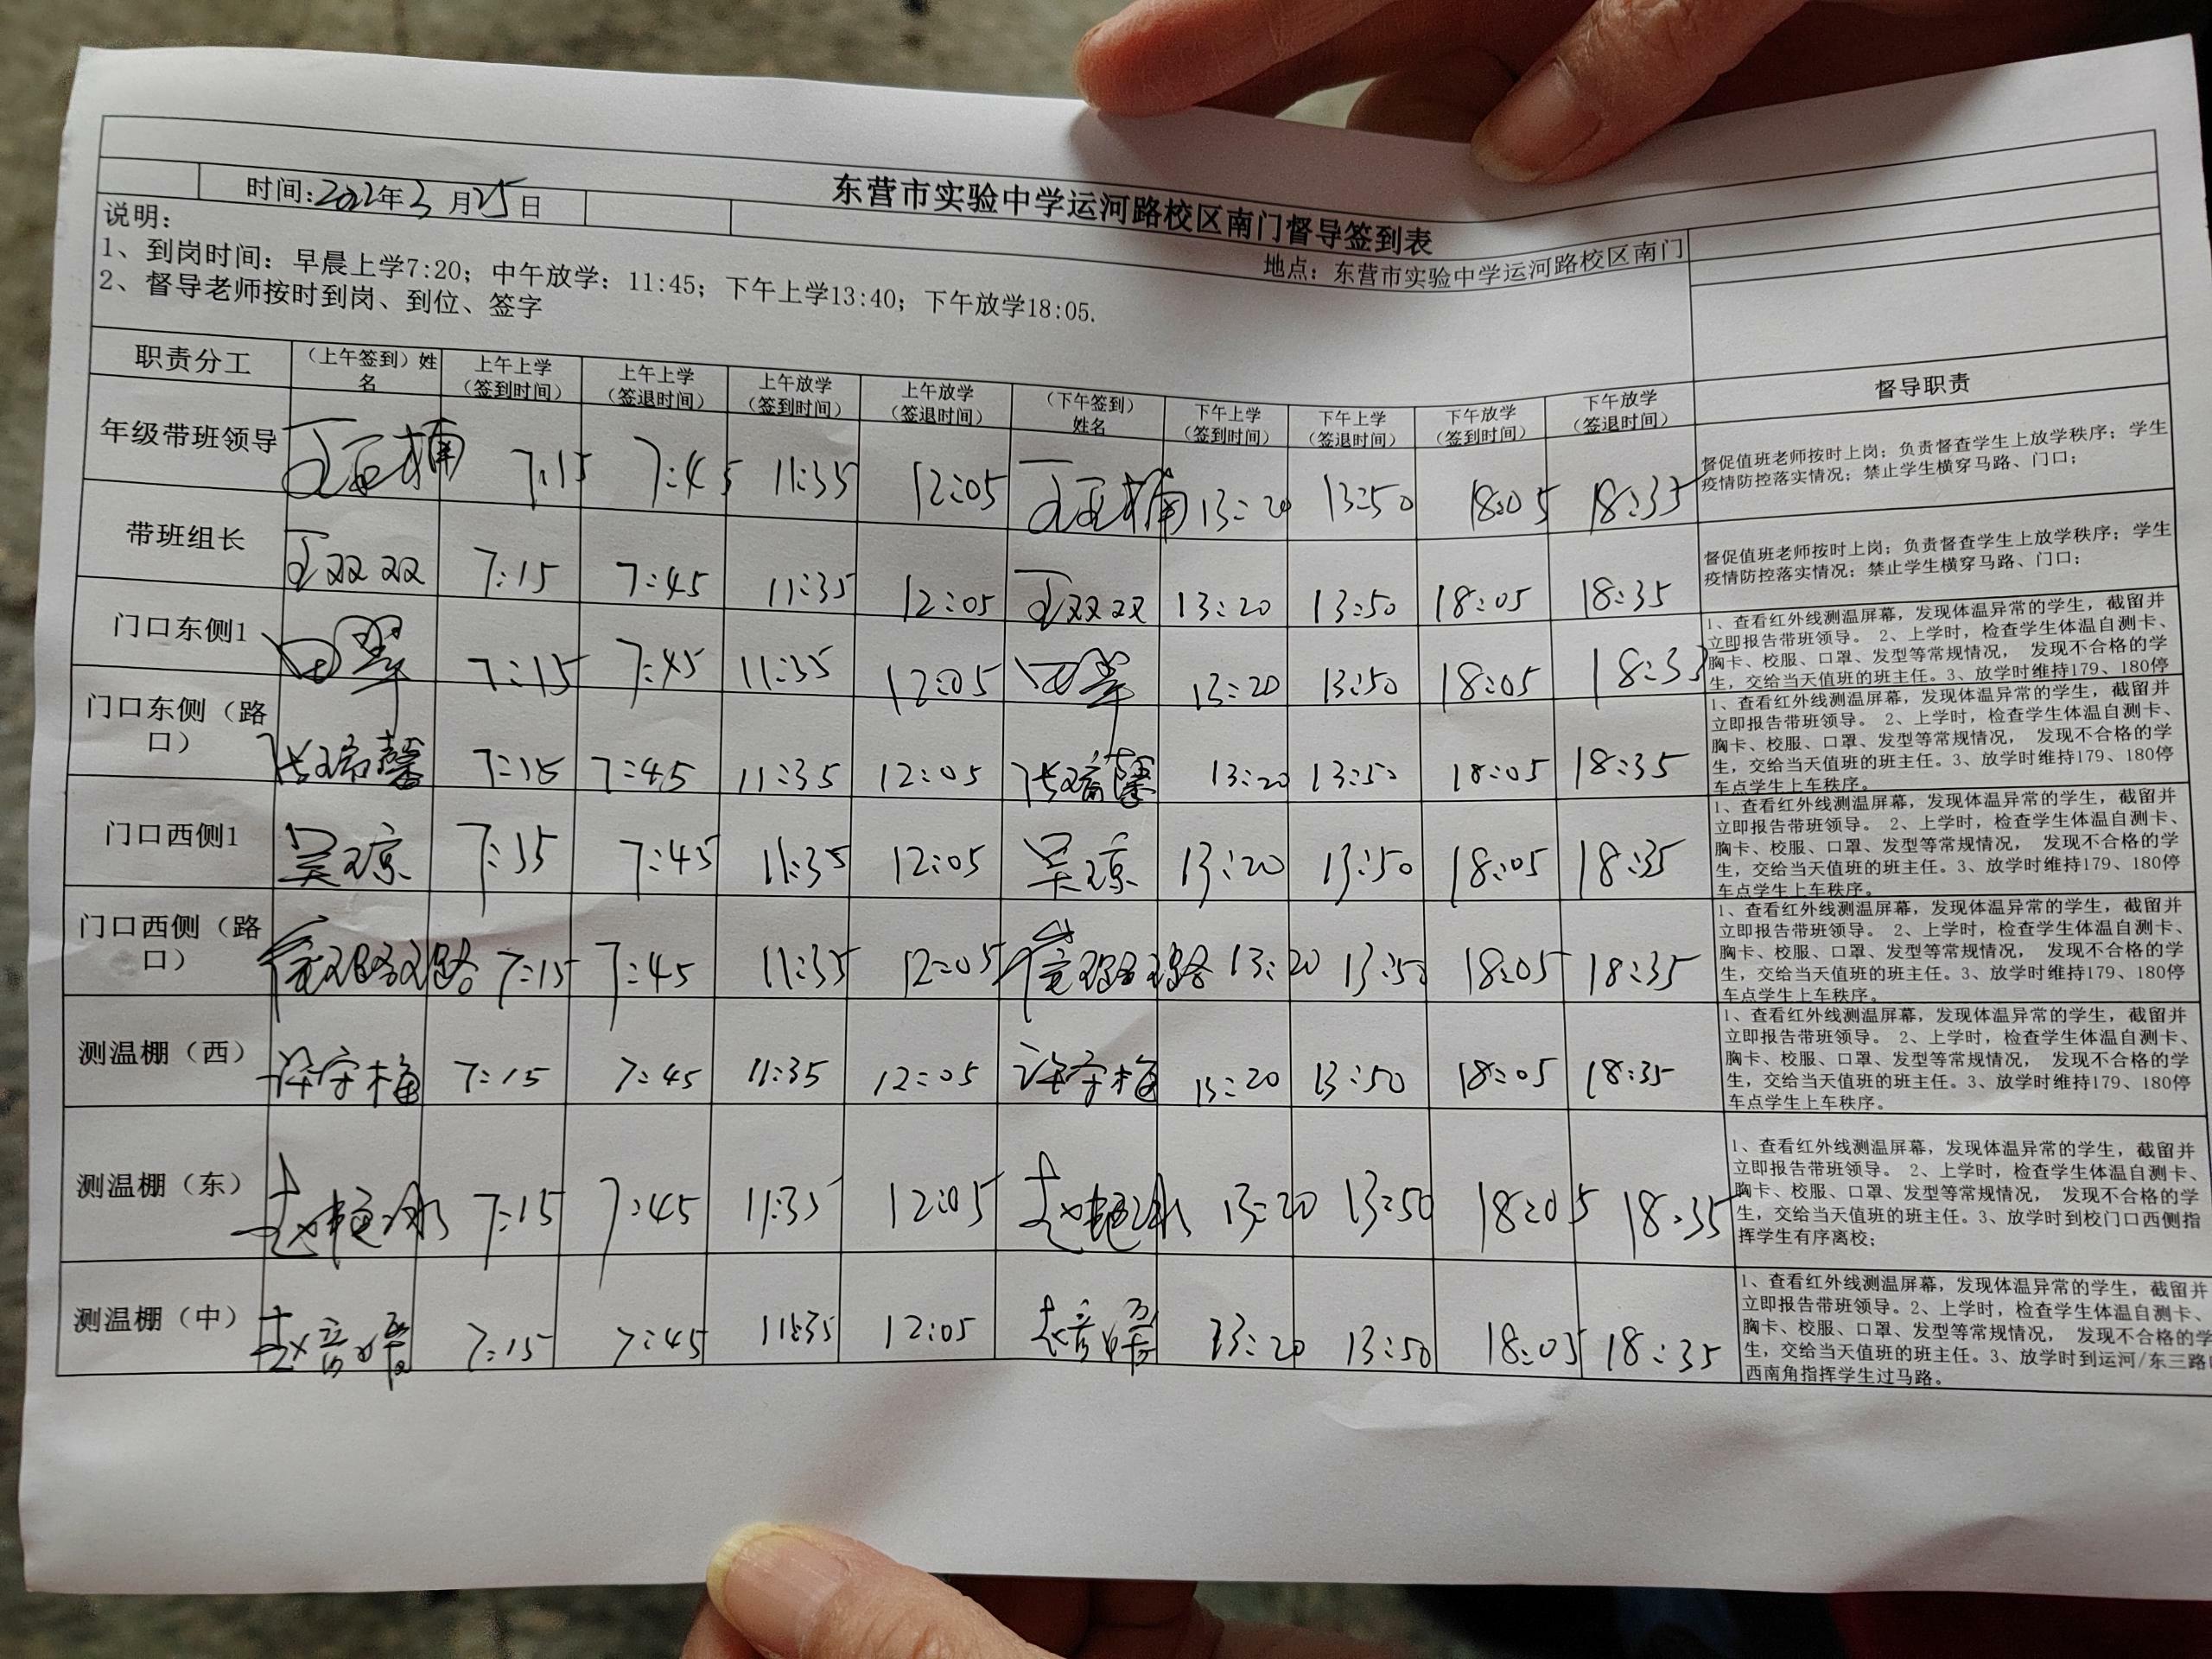 东营市实验中学运河路校区南门督导签到表
时间:2022年3月25日
地点：东营市实验中学运河路校区南门
说明：
1、到岗时间：早晨上学7:20；中午放学：11:45；下午上学13:40；下午放学18:05.
2、督导老师按时到岗、到位、签字
职责分工
（上午签到）姓
名
上午上学
（签到时间）
上午上学
（签退时间）
上午放学
（签到时间）
上午放学
（签退时间）
（下午签到）
姓名
下午上学
（签到时间）
下午上学
（签退时间）
下午放学
（签到时间）
下午放学
（签退时间）
督导职责
年级带班领导
王亚楠 7:15 7:45 11:35 12:05 王亚楠 13:20 13:50 18:05 18:35
督促值班老师按时上岗；负责督查学生上放学秩序；学生
疫情防控落实情况；禁止学生横穿马路、门口；
带班组长
王双双 7:15 7:45 11:35 12:05 王双双 13:20 13:50 18:05 18:35
督促值班老师按时上岗；负责督查学生上放学秩序；学生
疫情防控落实情况；禁止学生横穿马路、门口；
门口东侧1
田翠 7:15 7:45 11:35 12:05 田翠 13:20 13:50 18:05 18:35
1、查看红外线测温屏幕，发现体温异常的学生，截留并
立即报告带班领导。 2、上学时，检查学生体温自测卡、
胸卡、校服、口罩、发型等常规情况， 发现不合格的学
生，交给当天值班的班主任。3、放学时维持179、180停
门口东侧（路
口）
张瑞馨 7:15 7:45 11:35 12:05 张瑞馨 13:20 13:50 18:05 18:35
1、查看红外线测温屏幕，发现体温异常的学生，截留并
立即报告带班领导。 2、上学时，检查学生体温自测卡、
胸卡、校服、口罩、发型等常规情况， 发现不合格的学
生，交给当天值班的班主任。3、放学时维持179、180停
车点学生上车秩序。
门口西侧1
吴琼 7:15 7:45 11:35 12:05 吴琼 13:20 13:50 18:05 18:35
1、查看红外线测温屏幕，发现体温异常的学生，截留并
立即报告带班领导。 2、上学时，检查学生体温自测卡、
胸卡、校服、口罩、发型等常规情况， 发现不合格的学
生，交给当天值班的班主任。3、放学时维持179、180停
车点学生上车秩序。
门口西侧（路
口）
璐璐 7:15 7:45 11:35 12:05 璐璐 13:20 13:50 18:05 18:35
1、查看红外线测温屏幕，发现体温异常的学生，截留并
立即报告带班领导。 2、上学时，检查学生体温自测卡、
胸卡、校服、口罩、发型等常规情况， 发现不合格的学
生，交给当天值班的班主任。3、放学时维持179、180停
车点学生上车秩序。
测温棚（西）
许守梅 7:15 7:45 11:35 12:05 许守梅 13:20 13:50 18:05 18:35
1、查看红外线测温屏幕，发现体温异常的学生，截留并
立即报告带班领导。 2、上学时，检查学生体温自测卡、
胸卡、校服、口罩、发型等常规情况， 发现不合格的学
生，交给当天值班的班主任。3、放学时维持179、180停
车点学生上车秩序。
测温棚（东）
赵艳冰 7:15 7:45 11:35 12:05 赵艳冰 13:20 13:50 18:05 18:35
1、查看红外线测温屏幕，发现体温异常的学生，截留并
立即报告带班领导。 2、上学时，检查学生体温自测卡、
胸卡、校服、口罩、发型等常规情况， 发现不合格的学
生，交给当天值班的班主任。3、放学时到校门口西侧指
挥学生有序离校；
测温棚（中）
赵 7:15 7:45 11:35 12:05 赵 13:20 13:50 18:05 18:35
1、查看红外线测温屏幕，发现体温异常的学生，截留并
立即报告带班领导。2、上学时，检查学生体温自测卡、
胸卡、校服、口罩、发型等常规情况， 发现不合格的学
生，交给当天值班的班主任。3、放学时到运河/东三路
西南角指挥学生过马路。